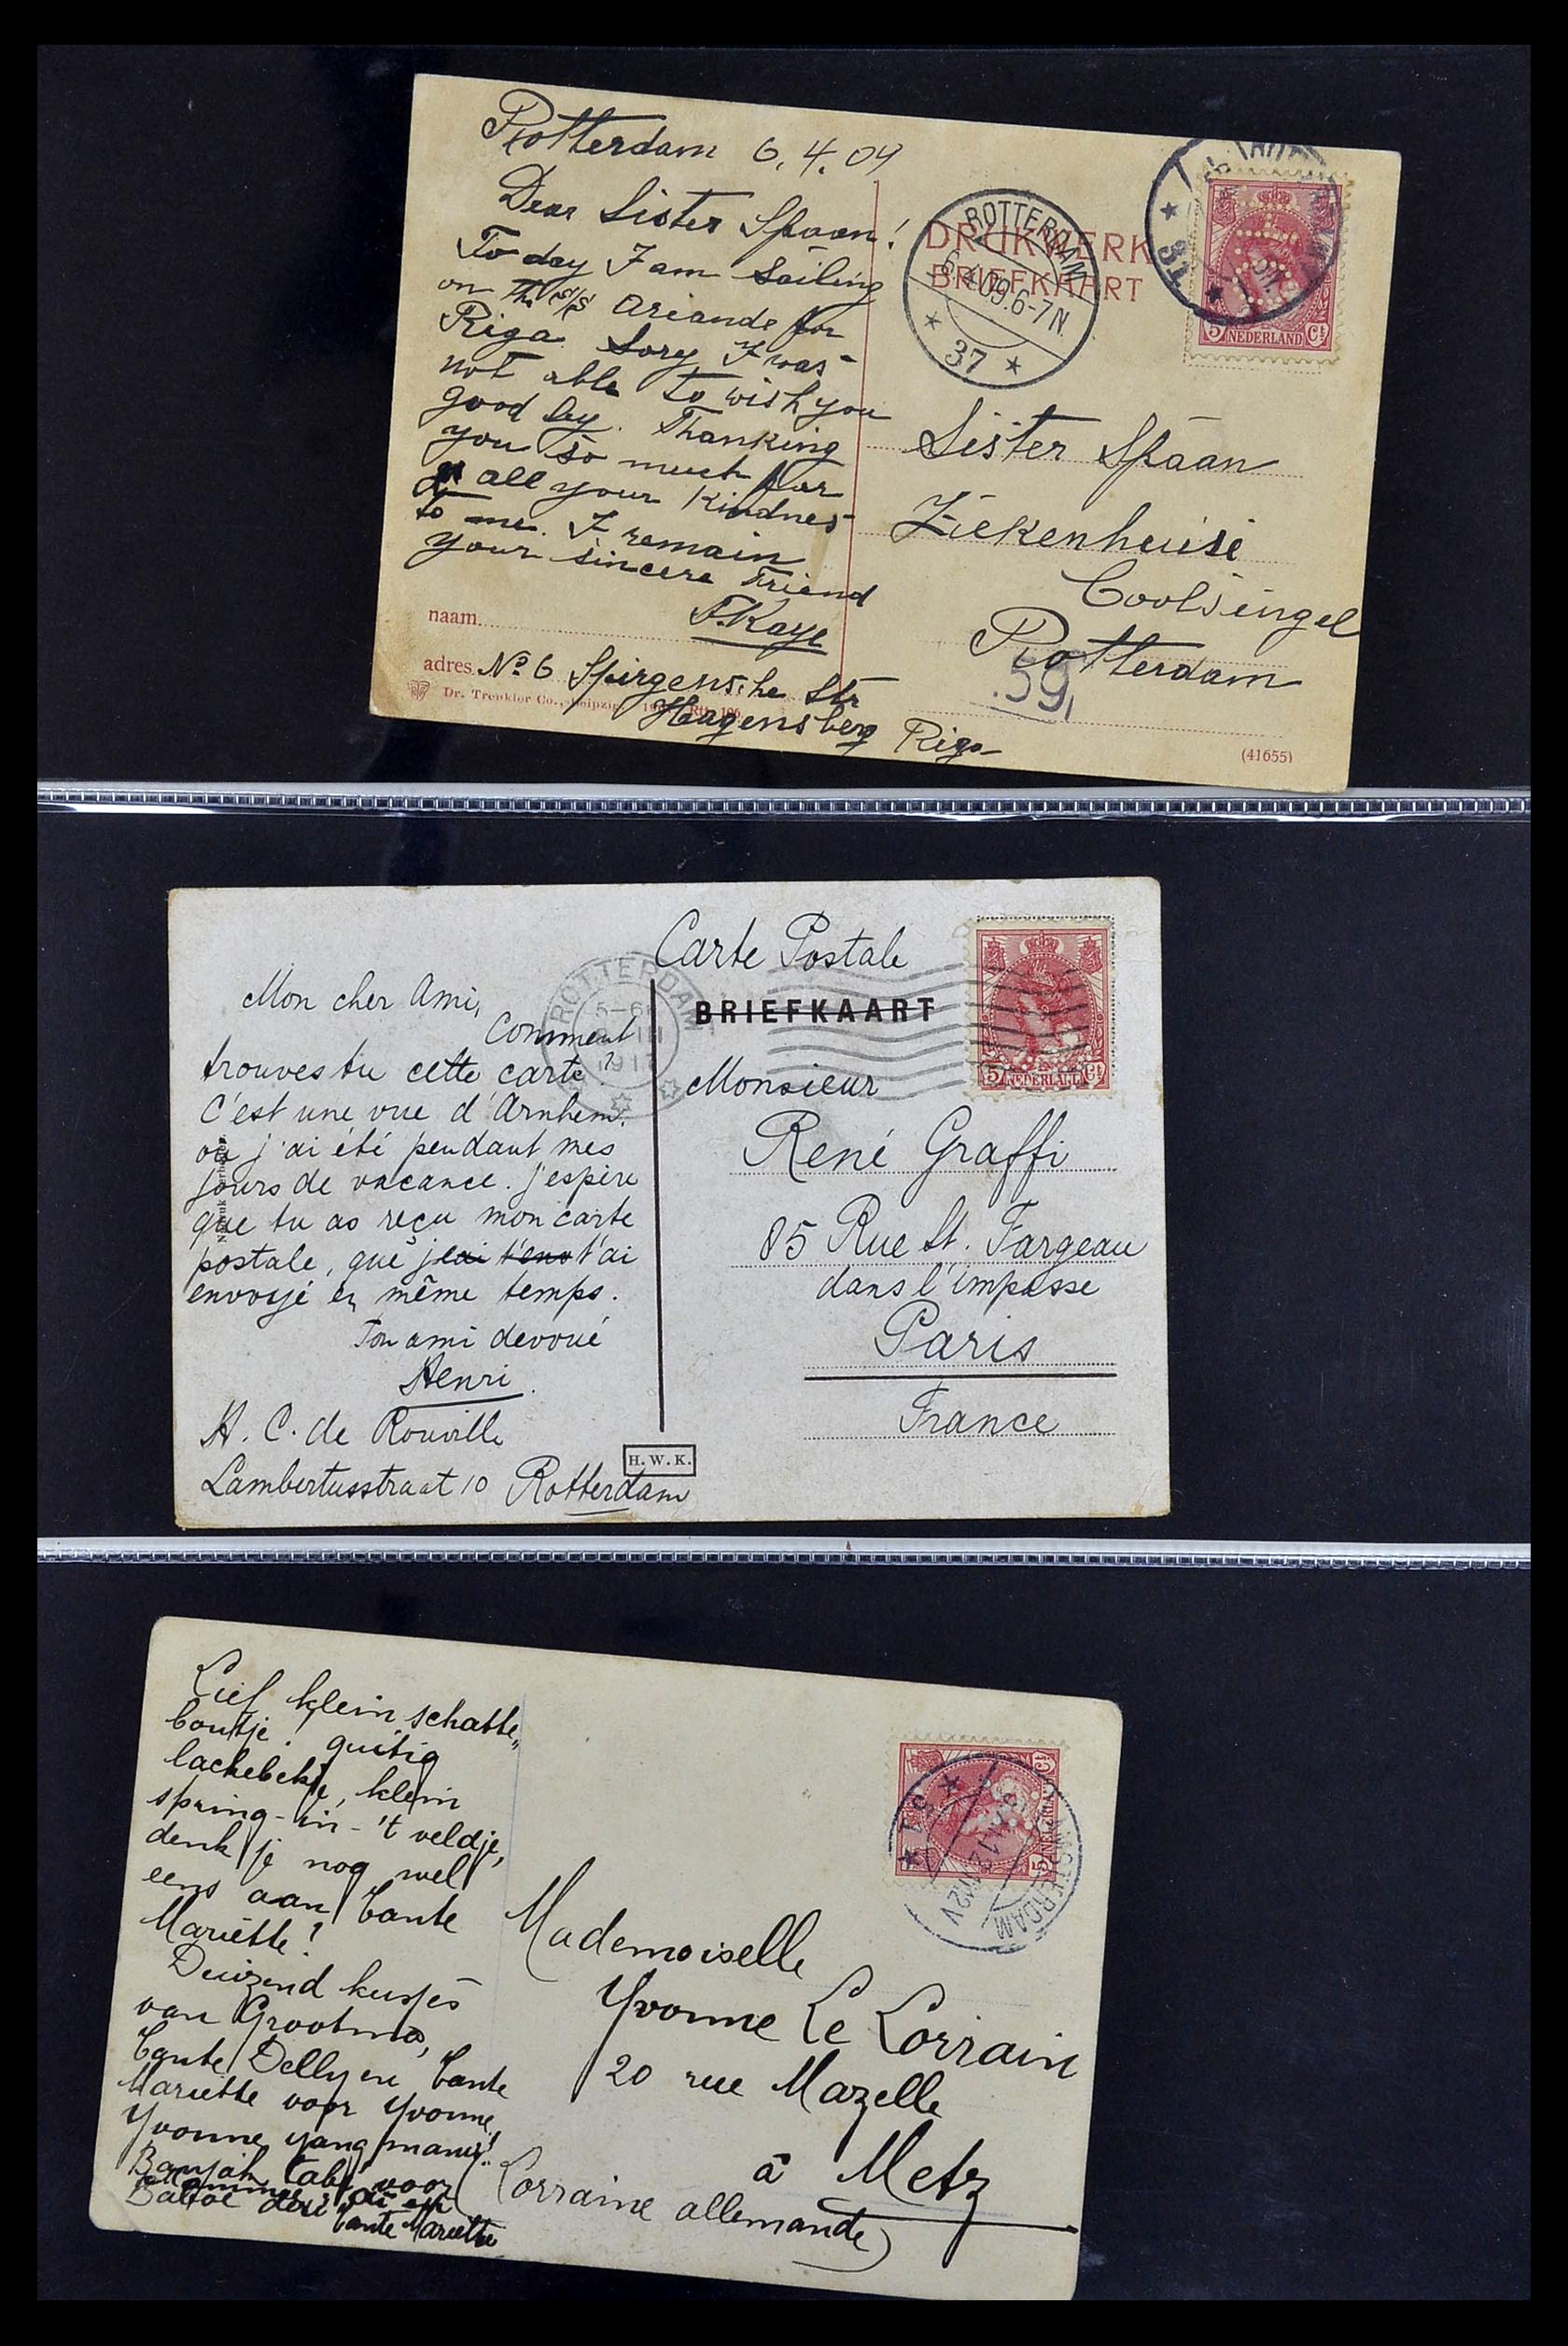 Rotterdam 6.4.09
Dear Sister Spaan!
To day I am Sailing
on the s/s Ariande for
Riga. Sory I was
not able to wish you
good by. Thanking
you so much for
all your Kindnes
to me. I remain
your sincere Friend
F. Kaye
naam
adres No. 6 Spirgensche Str
Hagensberg Riga
Dr. Trenkler Co., Leipzig
DRUKWERK
BRIEFKAART
ROTTERDAM
6.4.09.6-7N
37
5 NEDERLAND Ct
Sister Spaan
Ziekenhuise
Coolsingel
Rotterdam
59
(41655)
Carte Postale
BRIEFKAART
ROTTERDAM
5-6
III
191
5 NEDERLAND Ct
Mon cher Ami,
Comment
trouves tu cette carte?
C'est une vue d'Arnhem.
où j'ai été pendant mes
jours de vacance. j'espère
que tu as reçu mon carte
postale, que j'ai t'env t'ai
envoyé en même temps.
Ton ami devoué
Henri.
A. C. de Rouville
Lambertusstraat 10 Rotterdam
H.W.K.
Monsieur
René Graffi
85 Rue St. Fargeau
dans l'impasse
Paris
France
Lief klein schatte„
boutje! guitig
lachebekje, klein
spring-in-'t veldje,
denk je nog wel
eens aan Tante
Mariëtte?
Duizend kusjes
van Grootma,
Tante Delly en Tante
Mariëtte voor Yvonne,
Yvonne yang manis!
voor
Tante Mariëtte
5 NEDERLAND Ct
AMSTERDAM
12V
Mademoiselle
Yvonne Le Lorrain
20 rue Mazelle
à Metz
(Lorraine allemande)